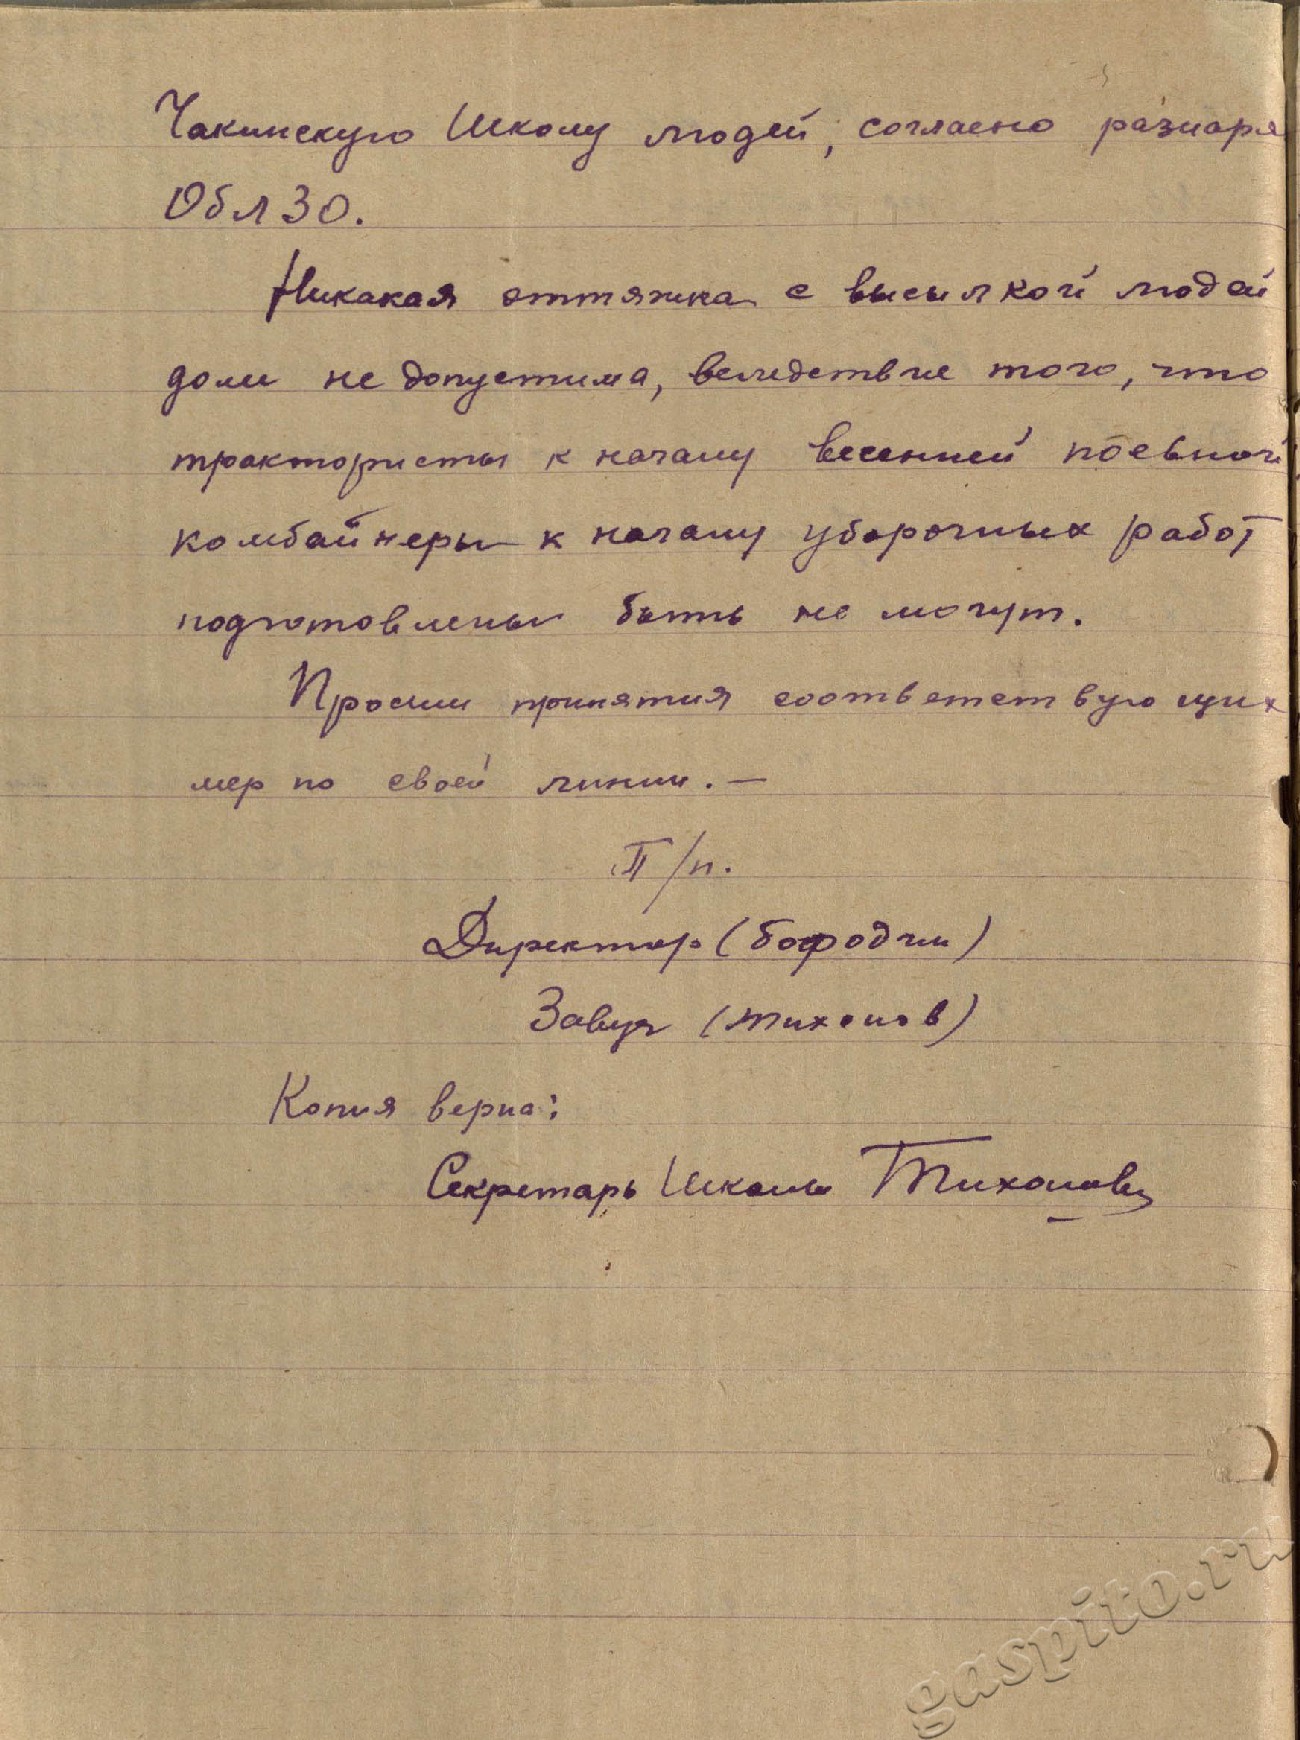 Чакинскую Школу людей, согласно разнаря
ОблЗО.
Никакая оттяжка с высылкой людей
доли не допустима, вследствие того, что
трактористы к началу весенней посевной
комбайнеры к началу уборочных работ
подготовлены быть не могут.
Просим принятия соответствующих
мер по своей линии. —
П/п.
Директор (Бородин)
Завуч (Тихонов)
Копия верна:
Секретарь Школы Тихонов
gaspito.ru